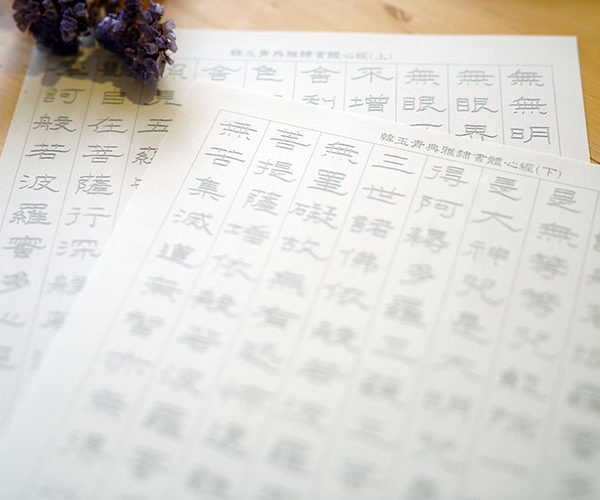 韓玉青典雅隸書體心經(上)
訶般若波羅蜜多心
自在菩薩行深般
見五
舍
色
舍利
不增
無眼
無眼界
無無明
韓玉青典雅隸書體心經(下)
無苦集滅道無智亦無得
菩提薩埵依般若波羅
無罣礙故無有恐怖遠
三世諸佛依般若波羅
得阿耨多羅三藐三菩
是大神咒是大明咒
是無等等咒能除一